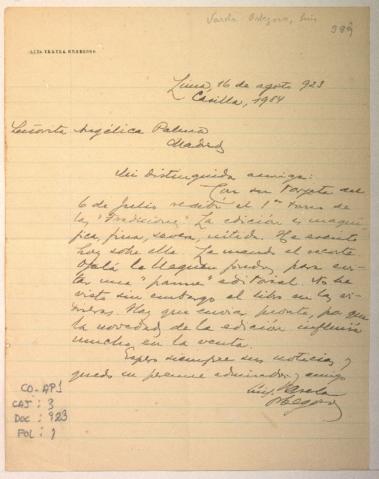 Varela Orbegoso, Luis
399
LUIS VARELA ORBEGOSO
Lima, 16 de agosto 923
Casilla, 1984
Señorita Angélica Palma
Madrid
Mi distinguida amiga:
Con su tarjeta del
6 de Julio recibí el 1er tomo de
las "Tradiciones". La edición es magní-
fica, fina, severa, nítida. He escrito
hoy sobre ella. Le mando el recorte.
Ojalá le lleguen pronto, para evi-
tar una "panne" editorial. No he
visto sin embargo el libro en las vi-
drieras. Hay que enviar pronto, por que
la novedad de la edición influirá
mucho en la venta.
Espero siempre sus noticias y
quedo su perenne admirador y amigo
Luis Varela
Orbegoso
CO-AP1
CAJ: 3
DOC: 923
FOL: 1